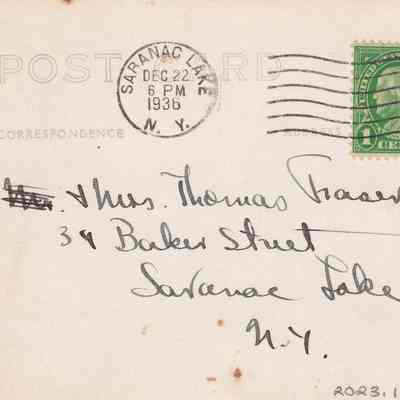 POST CARD
SARANAC LAKE
DEC 22
6 PM
1936
N. Y.
CORRESPONDENCE
ADDRESS
1
Mr. & Mrs. Thomas Fraser
34 Baker Street
Saranac Lake
N.Y.
2023.1